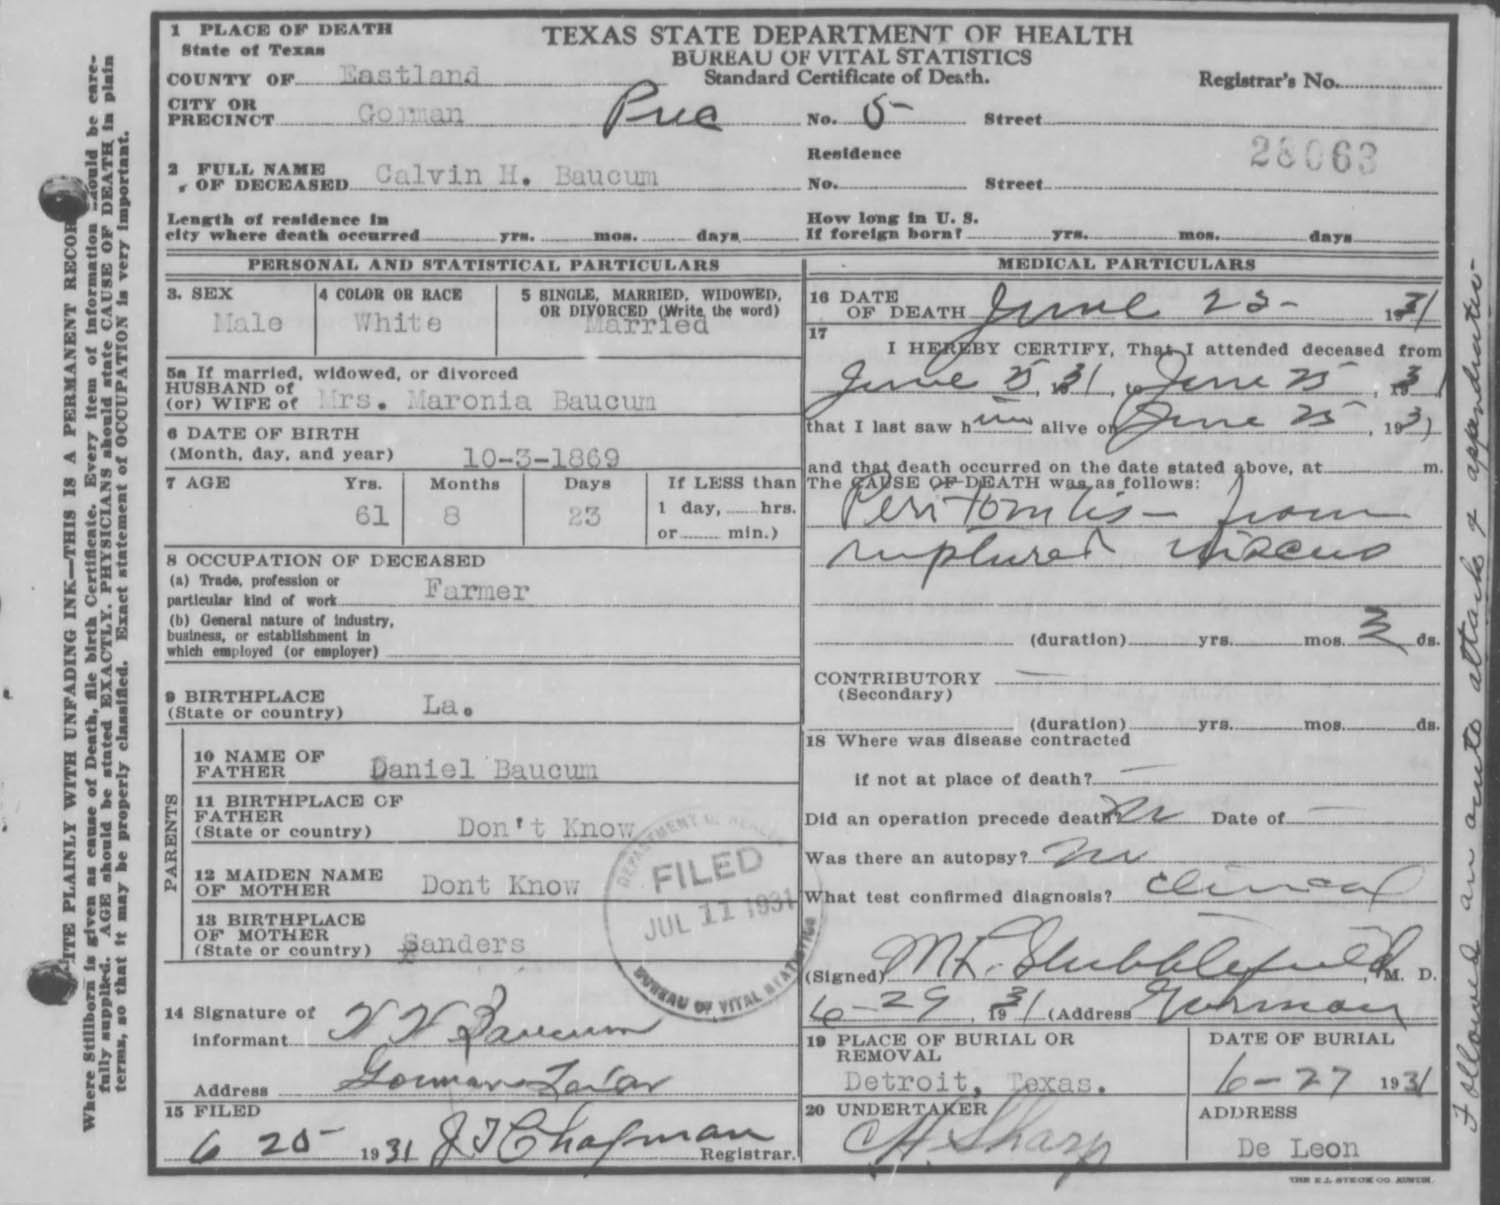 1 PLACE OF DEATH
State of Texas
COUNTY OF Eastland
CITY OR
PRECINCT Gorman Prec No. 5 Street
TEXAS STATE DEPARTMENT OF HEALTH
BUREAU OF VITAL STATISTICS
Standard Certificate of Death.
Registrar's No.
Residence
28063
2 FULL NAME
OF DECEASED Calvin H. Baucum No. Street
Length of residence in
city where death occurred yrs. mos. days
How long in U. S.
If foreign born? yrs. mos. days
PERSONAL AND STATISTICAL PARTICULARS
3. SEX
Male
4 COLOR OR RACE
White
5 SINGLE, MARRIED, WIDOWED,
OR DIVORCED (Write the word)
Married
5a If married, widowed, or divorced
HUSBAND of
(or) WIFE of Mrs. Maronia Baucum
6 DATE OF BIRTH
(Month, day, and year) 10-3-1869
7 AGE Yrs. Months Days If LESS than
61 8 23 1 day, hrs.
or min.)
8 OCCUPATION OF DECEASED
(a) Trade, profession or
particular kind of work Farmer
(b) General nature of industry,
business, or establishment in
which employed (or employer)
9 BIRTHPLACE
(State or country) La.
PARENTS
10 NAME OF
FATHER Daniel Baucum
11 BIRTHPLACE OF
FATHER
(State or country) Don't Know
12 MAIDEN NAME
OF MOTHER Dont Know
13 BIRTHPLACE
OF MOTHER
(State or country) Sanders
DEPARTMENT OF HEALTH
FILED
JUL 11 1931
BUREAU OF VITAL STATISTICS
14 Signature of
informant Baucum
Address Gorman Texas
15 FILED
6 25 1931 J T Chapman Registrar.
MEDICAL PARTICULARS
16 DATE
OF DEATH June 25 1931
17
I HEREBY CERTIFY, That I attended deceased from
June 25, 1931, to June 25, 1931
that I last saw him alive on June 25, 1931
and that death occurred on the date stated above, at m.
The CAUSE OF DEATH was as follows:
Peritonitis - from
ruptured viscus
(duration) yrs. mos. 3 ds.
CONTRIBUTORY
(Secondary)
(duration) yrs. mos. ds.
18 Where was disease contracted
if not at place of death?
Did an operation precede death no Date of
Was there an autopsy? no
What test confirmed diagnosis? clinical
(Signed) Stubblefield, M. D.
6-29, 1931 (Address Gorman
19 PLACE OF BURIAL OR
REMOVAL
Detroit, Texas.
DATE OF BURIAL
6-27 1931
20 UNDERTAKER
Sharp
ADDRESS
De Leon
THE E.L. STECK CO. AUSTIN.
Followed an acute attack of appendicitis-
WRITE PLAINLY WITH UNFADING INK—THIS IS A PERMANENT RECORD
Where Stillborn is given as cause of Death, file birth Certificate. Every item of information should be care-
fully supplied. AGE should be stated EXACTLY. PHYSICIANS should state CAUSE OF DEATH in plain
terms, so that it may be properly classified. Exact statement of OCCUPATION is very important.